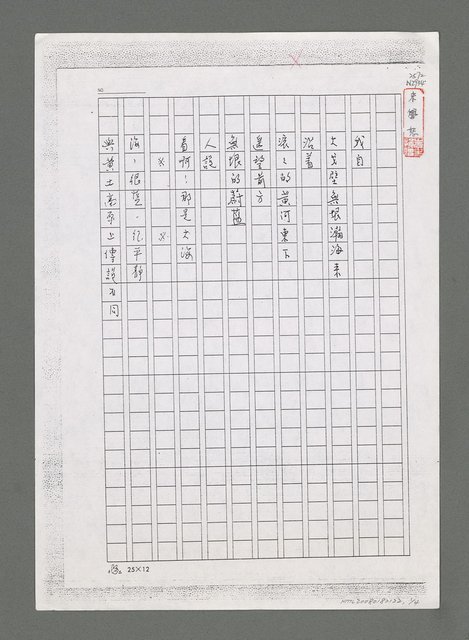 我自
大戈壁無垠瀚海來
沿着
滾滾的黃河東下
遙望前方
無垠的蔚藍
人說
看啊!那是大海
※ ※
海,很藍,很平靜
與黃土高原上傳說不同
25×12